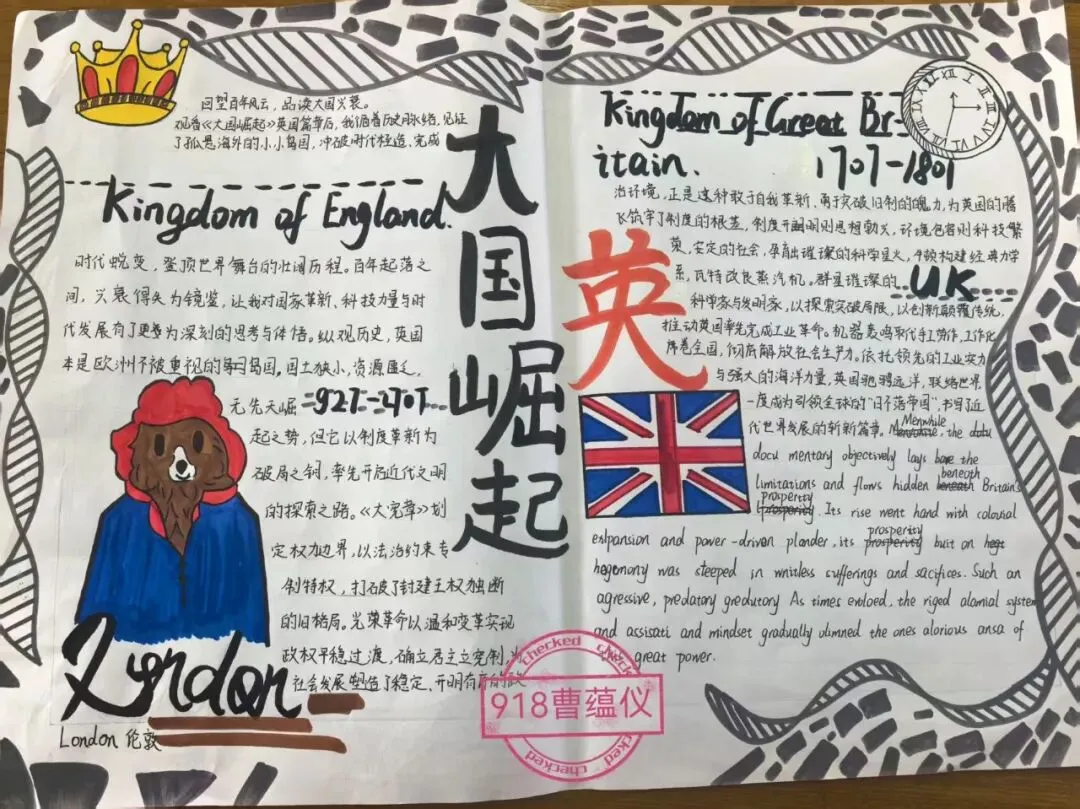 回望百年风云，品读大国兴衰。
观看《大国崛起》英国篇章后，我循着历史脉络，见证
了孤悬海外的小小岛国，冲破时代桎梏、完成
Kingdom of England.
时代蜕变，登顶世界舞台的壮阔历程。百年起落之
间，兴衰得失为镜鉴，让我对国家革新、科技力量与时
代发展有了更为深刻的思考与体悟。纵观历史，英国
本是欧洲不被重视的岛国。国土狭小，资源匮乏，
无先天崛
927-1707
起之势，但它以制度革新为
破局之钥，率先开启近代文明
的探索之路。《大宪章》划
定权力边界，以法治约束专
制特权，打破了封建王权独断
的旧格局。光荣革命以温和变革实现
政权平稳过渡，确立君主立宪制，为
社会发展塑造了稳定、开明有序的政
London
London 伦敦
大国崛起
英
Kingdom of Great Br-
itain.
1707-1801
治环境，正是这种敢于自我革新、勇于突破旧制的魄力，为英国的腾
飞筑牢了制度的根基，制度开明则思想勃兴，环境包容则科技繁
荣，安定的社会，孕育出璀璨的科学星火，牛顿构建经典力学
系，瓦特改良蒸汽机。群星璀璨的
UK
科学家与发明家，以探索突破局限，以创新颠覆传统，
推动英国率先完成工业革命。机器轰鸣取代手工劳作，工作化
席卷全国，彻底解放社会生产力。依托领先的工业实力
与强大的海洋力量，英国驰骋远洋，联络世界，
一度成为引领全球的“日不落帝国”，书写了近
代世界发展的崭新篇章。Menwhile, the docu
docu mentary objectively lays bare the
limitations and flows hidden beneoth Britain's
prosperity. Its rise went hand with colovial
exlpansion and power-drivon plander, its prosperity buit on hegt
hegemony was steeped in wnitless sufferings and sacifices. Such an
agressive, predatory gredutory As times evoloed, the riged alamial system
and assisati and mindset gradually ulmned the ones alorious ansa of
this great power.
XII I II III IV V VI VII VIII IX X XI
checked checked
918曹蕴仪
checked checked